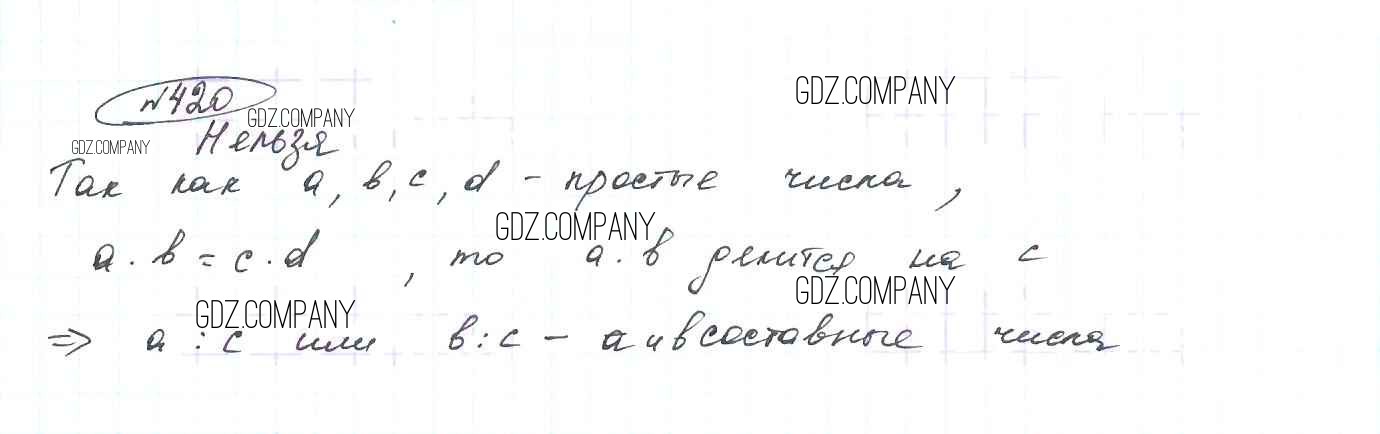 №420
GDZ.COMPANY
GDZ.COMPANY
GDZ.COMPANY
Нельзя
Так как a, b, c, d - простые числа,
GDZ.COMPANY
a · b = c · d, то a · b делится на c
GDZ.COMPANY
GDZ.COMPANY
=> a : c или b : c - a и b составные числа